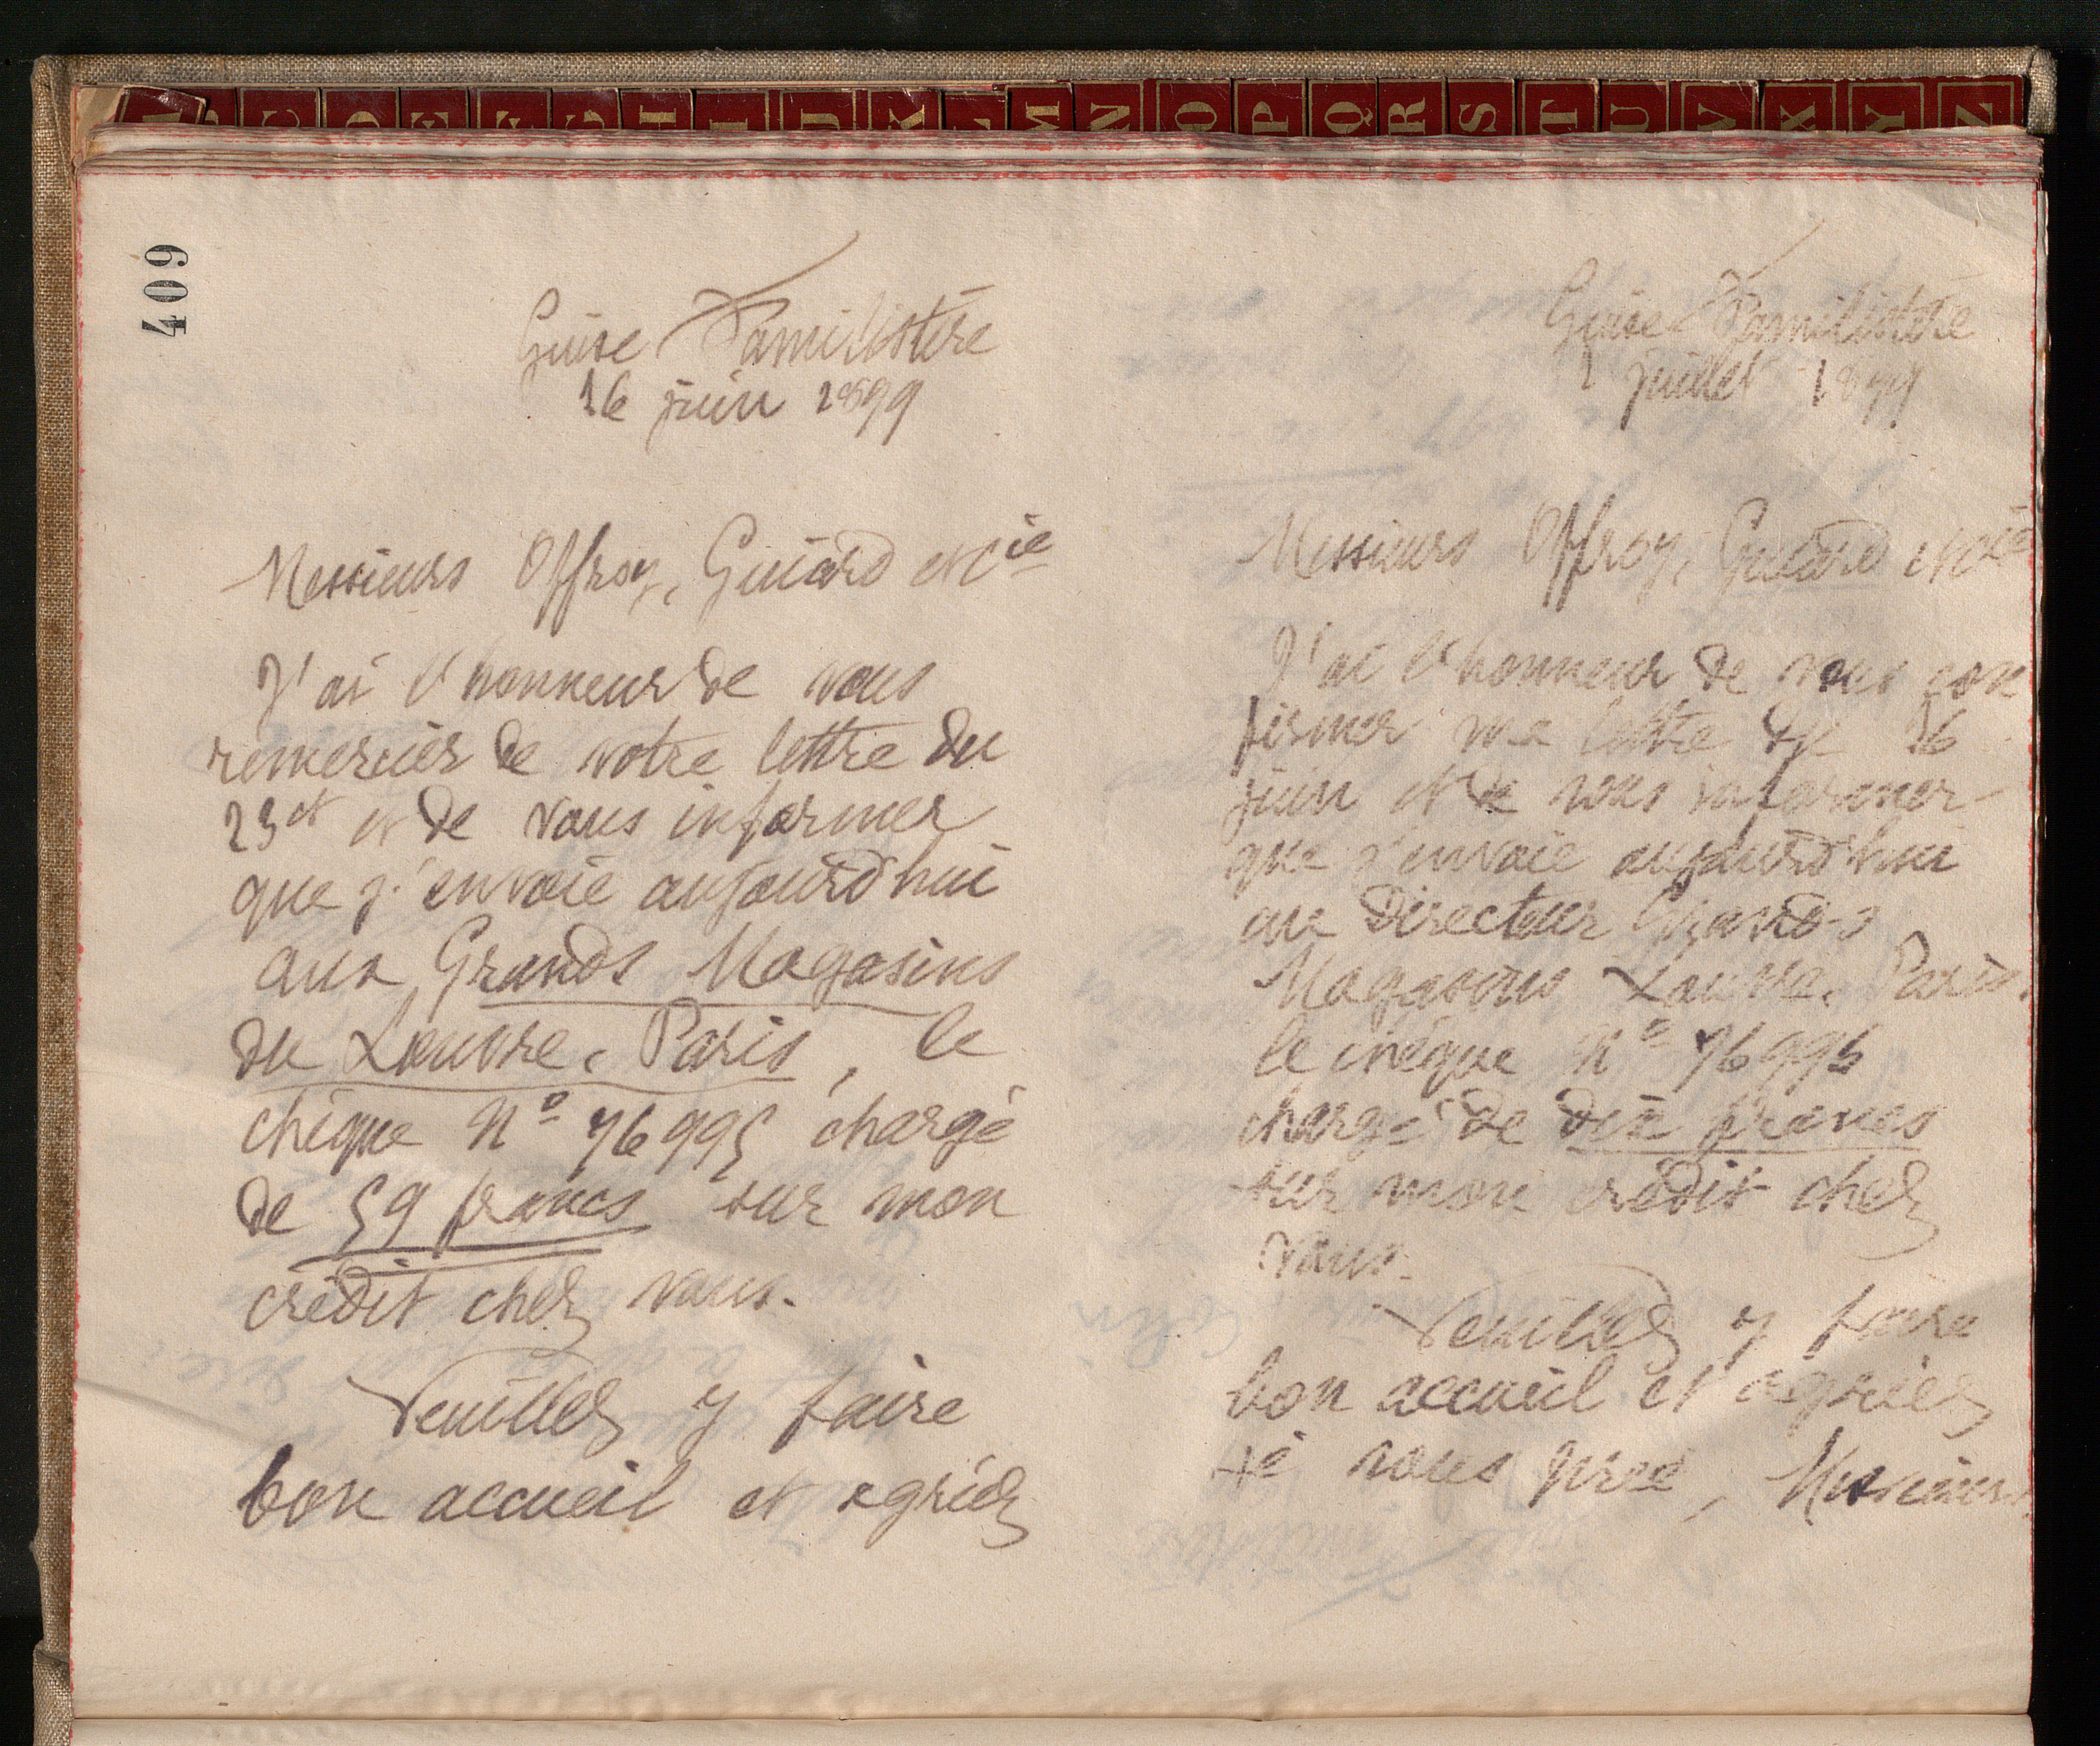 A B C D E F G H I J K L M N O P Q R S T U V X Y Z
409
Guise Familistère
16 juin 1899
Messieurs Offroy, Guiard et Cie
J'ai l'honneur de vous
remercier de votre lettre du
23 ct et de vous informer
que j'envoie aujourd'hui
aux Grands Magasins
du Louvre, Paris, le
chèque No 76995 chargé
de 59 francs sur mon
crédit chez vous.
Veuillez y faire
bon accueil et agréez
Guise Familistère
1 juillet 1899
Messieurs Offroy, Guiard et Cie
J'ai l'honneur de vous con
firmer ma lettre du 16
juin et de vous informer
que j'envoie aujourd'hui
au Directeur Grands
Magasins Louvre, Paris.
le chèque No 76996
chargé de dix francs
sur mon crédit chez
vous.
Veuillez y faire
bon accueil et agréez
je vous prie, Messieurs